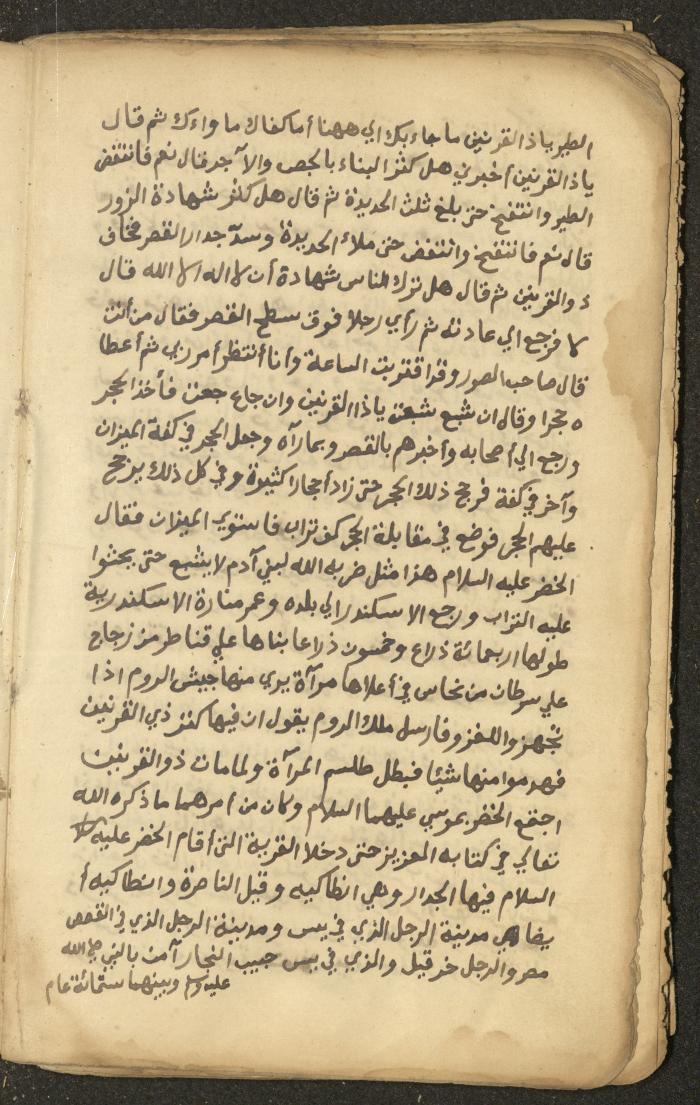 الطير ياذا القرنين ما جاء بك الي ههنا أما كفاك ما وراءك ثم قال
ياذا القرنين أخبرني هل كثر البناء بالجص والآجر قال نعم فانتفض
الطير وانتفخ حتى بلغ ثلث الحديدة ثم قال هل كثر شهادة الزور
قال نعم فانتفخ وانتفض حتى ملاء الحديدة وسدّ جدار القصر فخاف
ذوالقرنين ثم قال هل ترك الناس شهادة أن لا اله الا الله قال
لا فرجع الي عادته ثم رأي رجلا فوق سطح القصر فقال من أنت
قال صاحب الصور وقد اقتربت الساعة وأنا أنتظر أمر ربي ثم أعطا
ه حجرا وقال ان شبع شبعت ياذا القرنين وان جاع جعت فأخذ الحجر
ورجع الي أصحابه وأخبرهم بالقصر وبما رآه وجعل الحجر في كفة الميزان
وآخر في كفة فرجح ذلك الحجر حتى زاد أحجارا كثيرة وفي كل ذلك يرجح
عليهم الحجر فوضع في مقابلة الحجر كف تراب فاستوي الميزان فقال
الخضر عليه السلام هذا مثل ضربه الله لبني آدم لا يشبع حتى يحثوا
عليه التراب ورجع الاسكندر الي بلده وعمر منارة الاسكندرية
طولها اربعمائة ذراع وخمسون ذراعا بناها علي قناطر من زجاج
علي سرطان من نحاس في أعلاها مرآة يري منها جيش الروم اذا
تجهز واللغزو فارسل ملك الروم يقول ان فيها كنز ذي القرنين
فهدموا منها شيئا فبطل طلسم المرآة ولما مات ذوالقرنين
اجتمع الخضر بموسي عليهما السلام وكان من أمرهما ما ذكره الله
تعالي في كتابه العزيز حتى دخلا القرية التي أقام الخضر عليه
السلام فيها الجدار وهي انطاكيه وقيل الناصرة وانطاكيه أ
يضا هي مدينة الرجل الذي في يس ومدينة الرجل الذي في القصص
مصر والرجل خرقيل والذي في يس حبيب النجار آمن بالنبي صلي الله
عليه وسلم وبينهما ستمائة عام